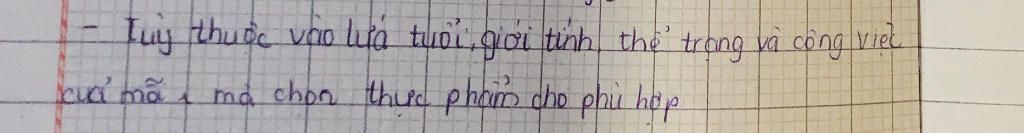 - Tuỳ thuộc vào lứa tuổi, giới tính, thể trạng và công việc
của mỗi mà chọn thực phẩm cho phù hợp